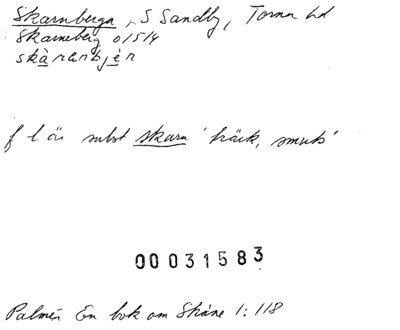 Skarnberga, S Sandby, Torna hd
Skarneberg 01514
skàrnbjèr
f l är subst skarn 'träck, smuts'
00031583
Palmér En bok om Skåne 1:118